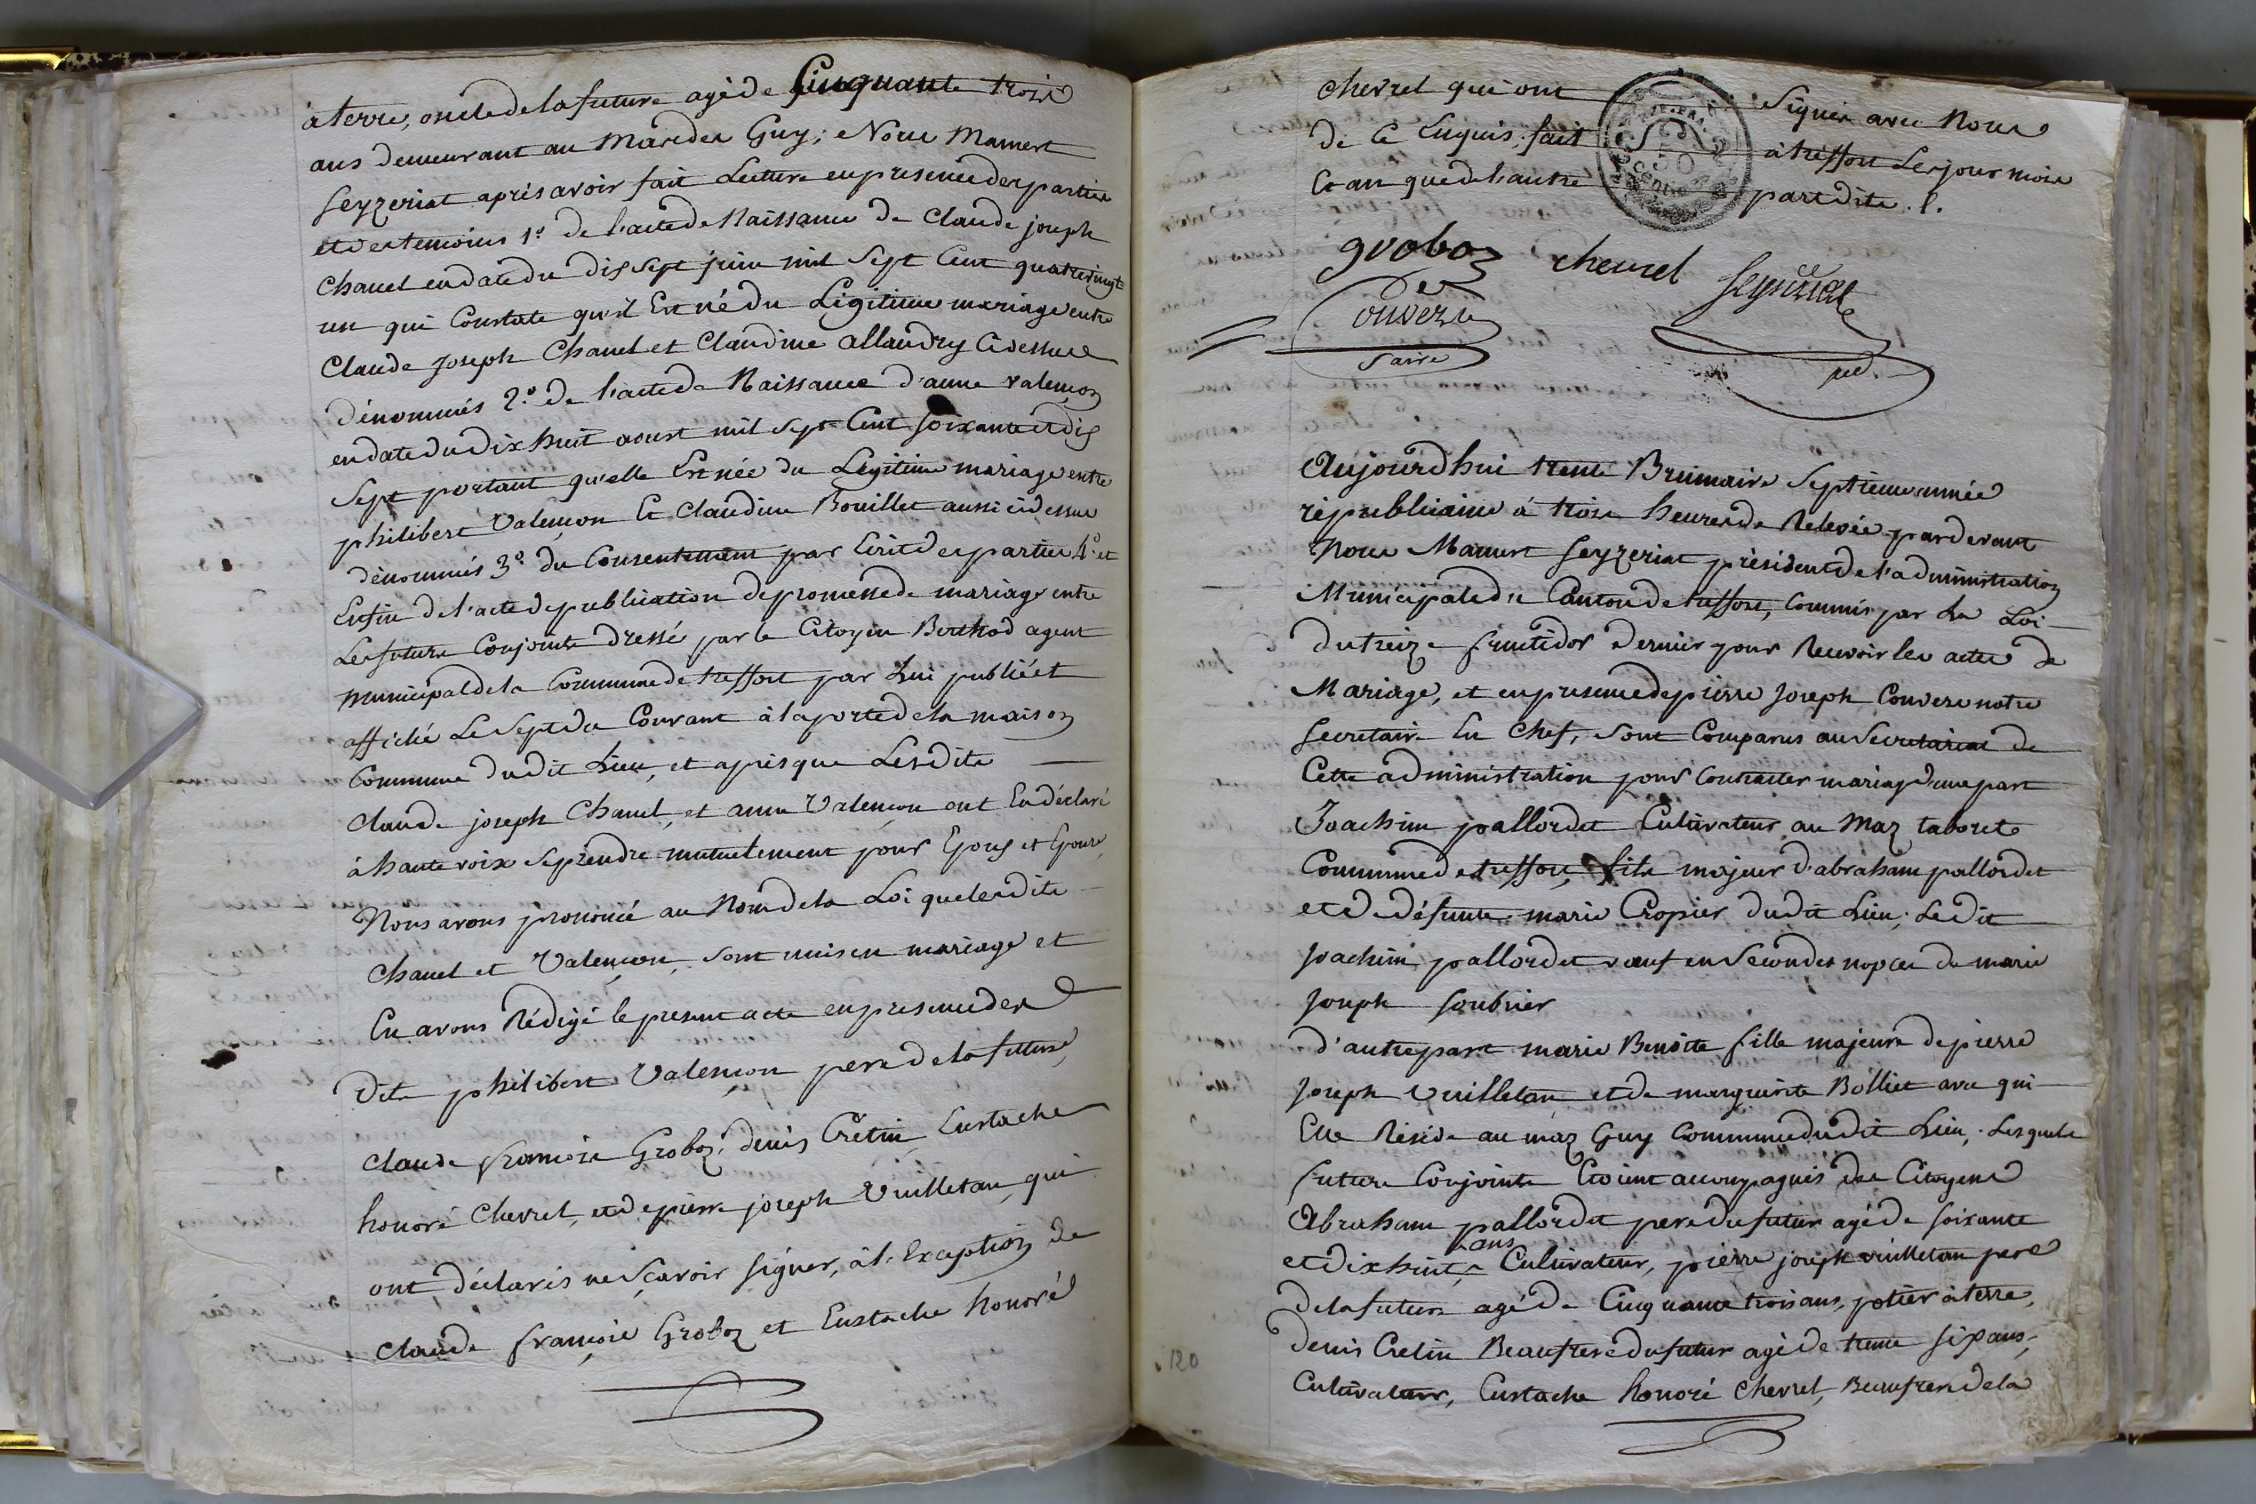 à terre, oncle de la future agé de Cinquante trois
ans demeurant au Mas des Guy; Nous Mamert
Seyzeriat après avoir fait Lecture en presence des parties
et des temoins 1.º de l'acte de Naissance de Claude joseph
Chanel en date du dix sept juin mil Sept Cent quatrevingt
un qui Constate qu'il Est né du Légitime mariage entre
Claude Joseph Chanel et Claudine allandry Cidessus
dénommés 2.º de l'acte de Naissance d'anne valençon
en date du dix huit aoust mil Sept Cent Soixante et dix
Sept portant qu'elle Est née du Légitime mariage entre
philibert Valençon Et Claudine Bouillet aussi cidessus
dénommés 3.º du Consentement par Ecrit des parties 4.º et
Enfin de l'acte de publication de promesse de mariage entre
Les futurs Conjoints dressé par le Citoyen Berthod agent
municipal de la Commune de treffort par Lui publié et
affiché Le Sept du Courant à la porte de la maison
Commune dudit Lieu, et après que Lesdits
Claude joseph Chanel, et anne Valençon ont Eu déclaré
à haute voix Se prendre mutuellement pour Epoux et Epouse,
Nous avons prononcé au Nom de la Loi que lesdits
Chanel et Valençon, Sont unis en mariage et
En avons Rédigé le present acte en presence des
dits philibert Valençon pere de la future,
Claude françois Groboz, denis Crétin, Eustache
honoré Chevrel, et de pierre joseph Vuilletan, qui
ont déclarés ne Sçavoir Signer, à l'Exception de
Claude françois Groboz et Eustache honoré
Chevrel qui ont Signés avec Nous
de Ce Enquis; fait à treffort Les jour mois
Et an que de l'autre part dits. /.
50
groboz chevrel Seyzeriat
Convers
Saire
pd.
Aujourdhui trente Brumaire Septieme année
républicaine à trois heures de Relevée pardevant
Nous Mamert Seyzeriat président de l'administration
Municipale du Canton de treffort, Commis par La Loi
du treize fructidor dernier pour Recevoir les actes de
Mariage, et en presence de pierre Joseph Convers notre
Secretaire En Chef, Sont Comparus au Secretariat de
Cette administration pour Contracter mariage d'une part
Joachim pallordet Cultivateur au Maz taboret
Commune de treffort, fils majeur d'abraham pallordet
et de défunte marie Cropier dudit Lieu; Ledit
Joachim pallordet veuf en Secondes nopces de marie
Joseph Soubrier
d'autre part marie Benoitte fille majeure de pierre
Joseph Vuilletan et de marguerite Bolliet avec qui
Elle Réside au maz Guy Commune dudit Lieu; Lesquels
futurs Conjoints Etoient accompagnés des Citoyens
Abraham pallordet pere du futur agé de Soixante
et dix huit ans Cultivateur, pierre joseph vuilletan pere
de la future agé de Cinquante trois ans, potier à terre,
denis Cretin Beaufrere du futur agé de trente Six ans,
Cultivateur, Eustache honoré Chevrel, Beaufrere de la
120